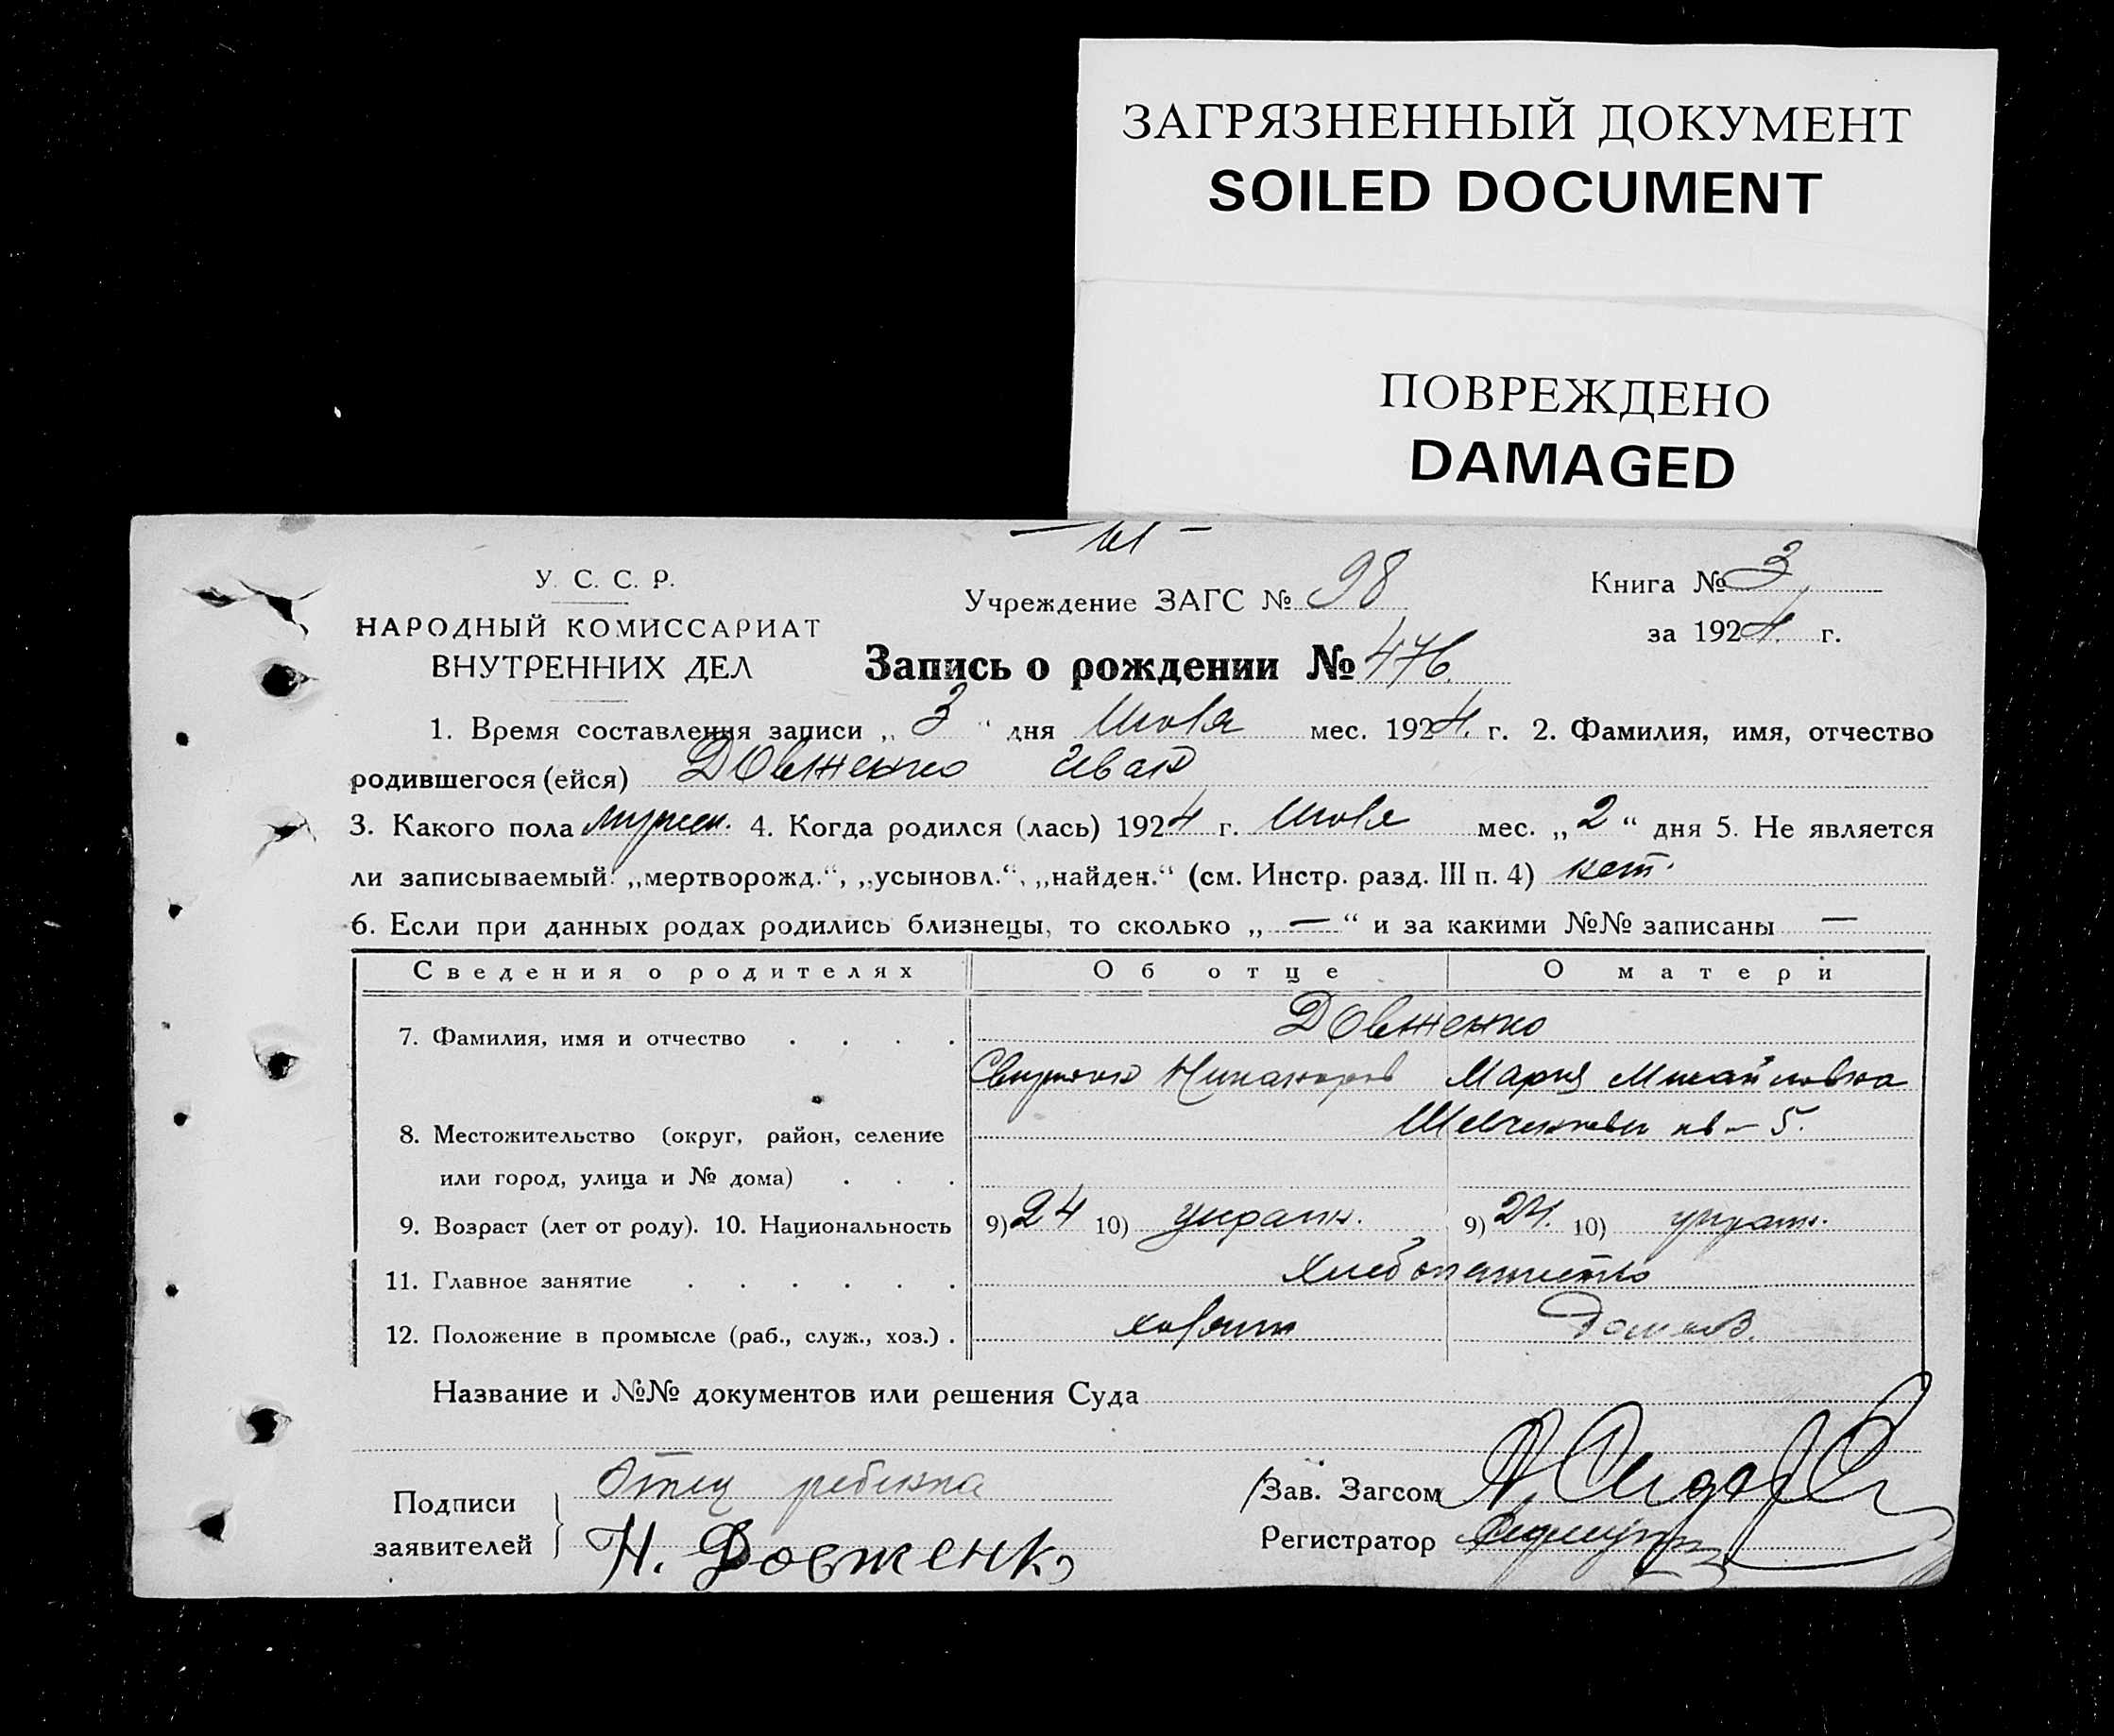 ЗАГРЯЗНЕННЫЙ ДОКУМЕНТ
SOILED DOCUMENT
ПОВРЕЖДЕНО
DAMAGED
У. С. С. Р.
НАРОДНЫЙ КОМИССАРИАТ
ВНУТРЕННИХ ДЕЛ
Учреждение ЗАГС № 98
Книга № 3
за 1924 г.
Запись о рождении № 476.
1. Время составления записи „ 3 “ дня Июля мес. 1924. г. 2. Фамилия, имя, отчество
родившегося (ейся) Довженко Иван
3. Какого пола мужск. 4. Когда родился (лась) 1924 г. Июля мес. „ 2 “ дня 5. Не является
ли записываемый: „мертворожд.“, „усыновл.“, „найден.“ (см. Инстр. разд. III п. 4) нет.
6. Если при данных родах родились близнецы, то сколько „ — “ и за какими №№ записаны —
Сведения о родителях Об отце О матери
7. Фамилия, имя и отчество . . . . Довженко
Никаноров Мария Михайловна
8. Местожительство (округ, район, селение кв – 5.
или город, улица и № дома) . . .
9. Возраст (лет от роду). 10. Национальность 9) 24 10) украин. 9) 24. 10) украин.
11. Главное занятие . . . . . . хлебопашество
12. Положение в промысле (раб., служ., хоз.) . хозяин
Название и №№ документов или решения Суда
Подписи заявителей } Отец ребенка
Н. Довженко
Зав. Загсом
Регистратор